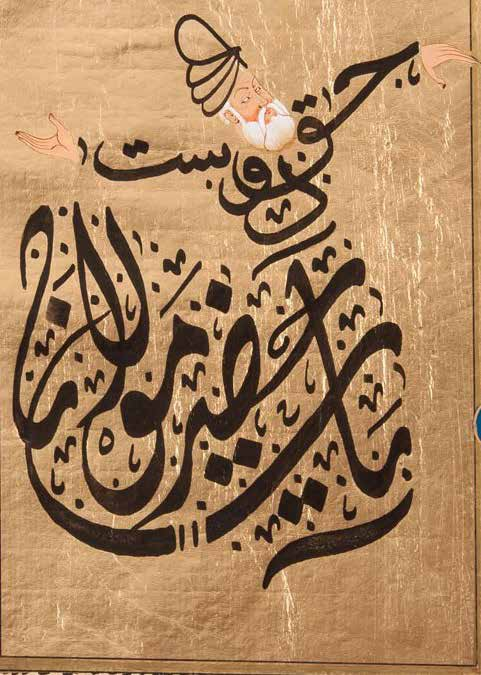 حق دوست
يا حضرت مولانا